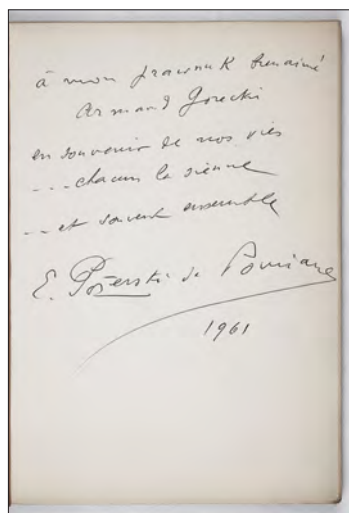 à mon prawnuk bienaimé
Armand Gorecki
en souvenir de nos vies
... chacun la sienne
... et souvent ensemble
E. Pożerski de Pomiane
1961